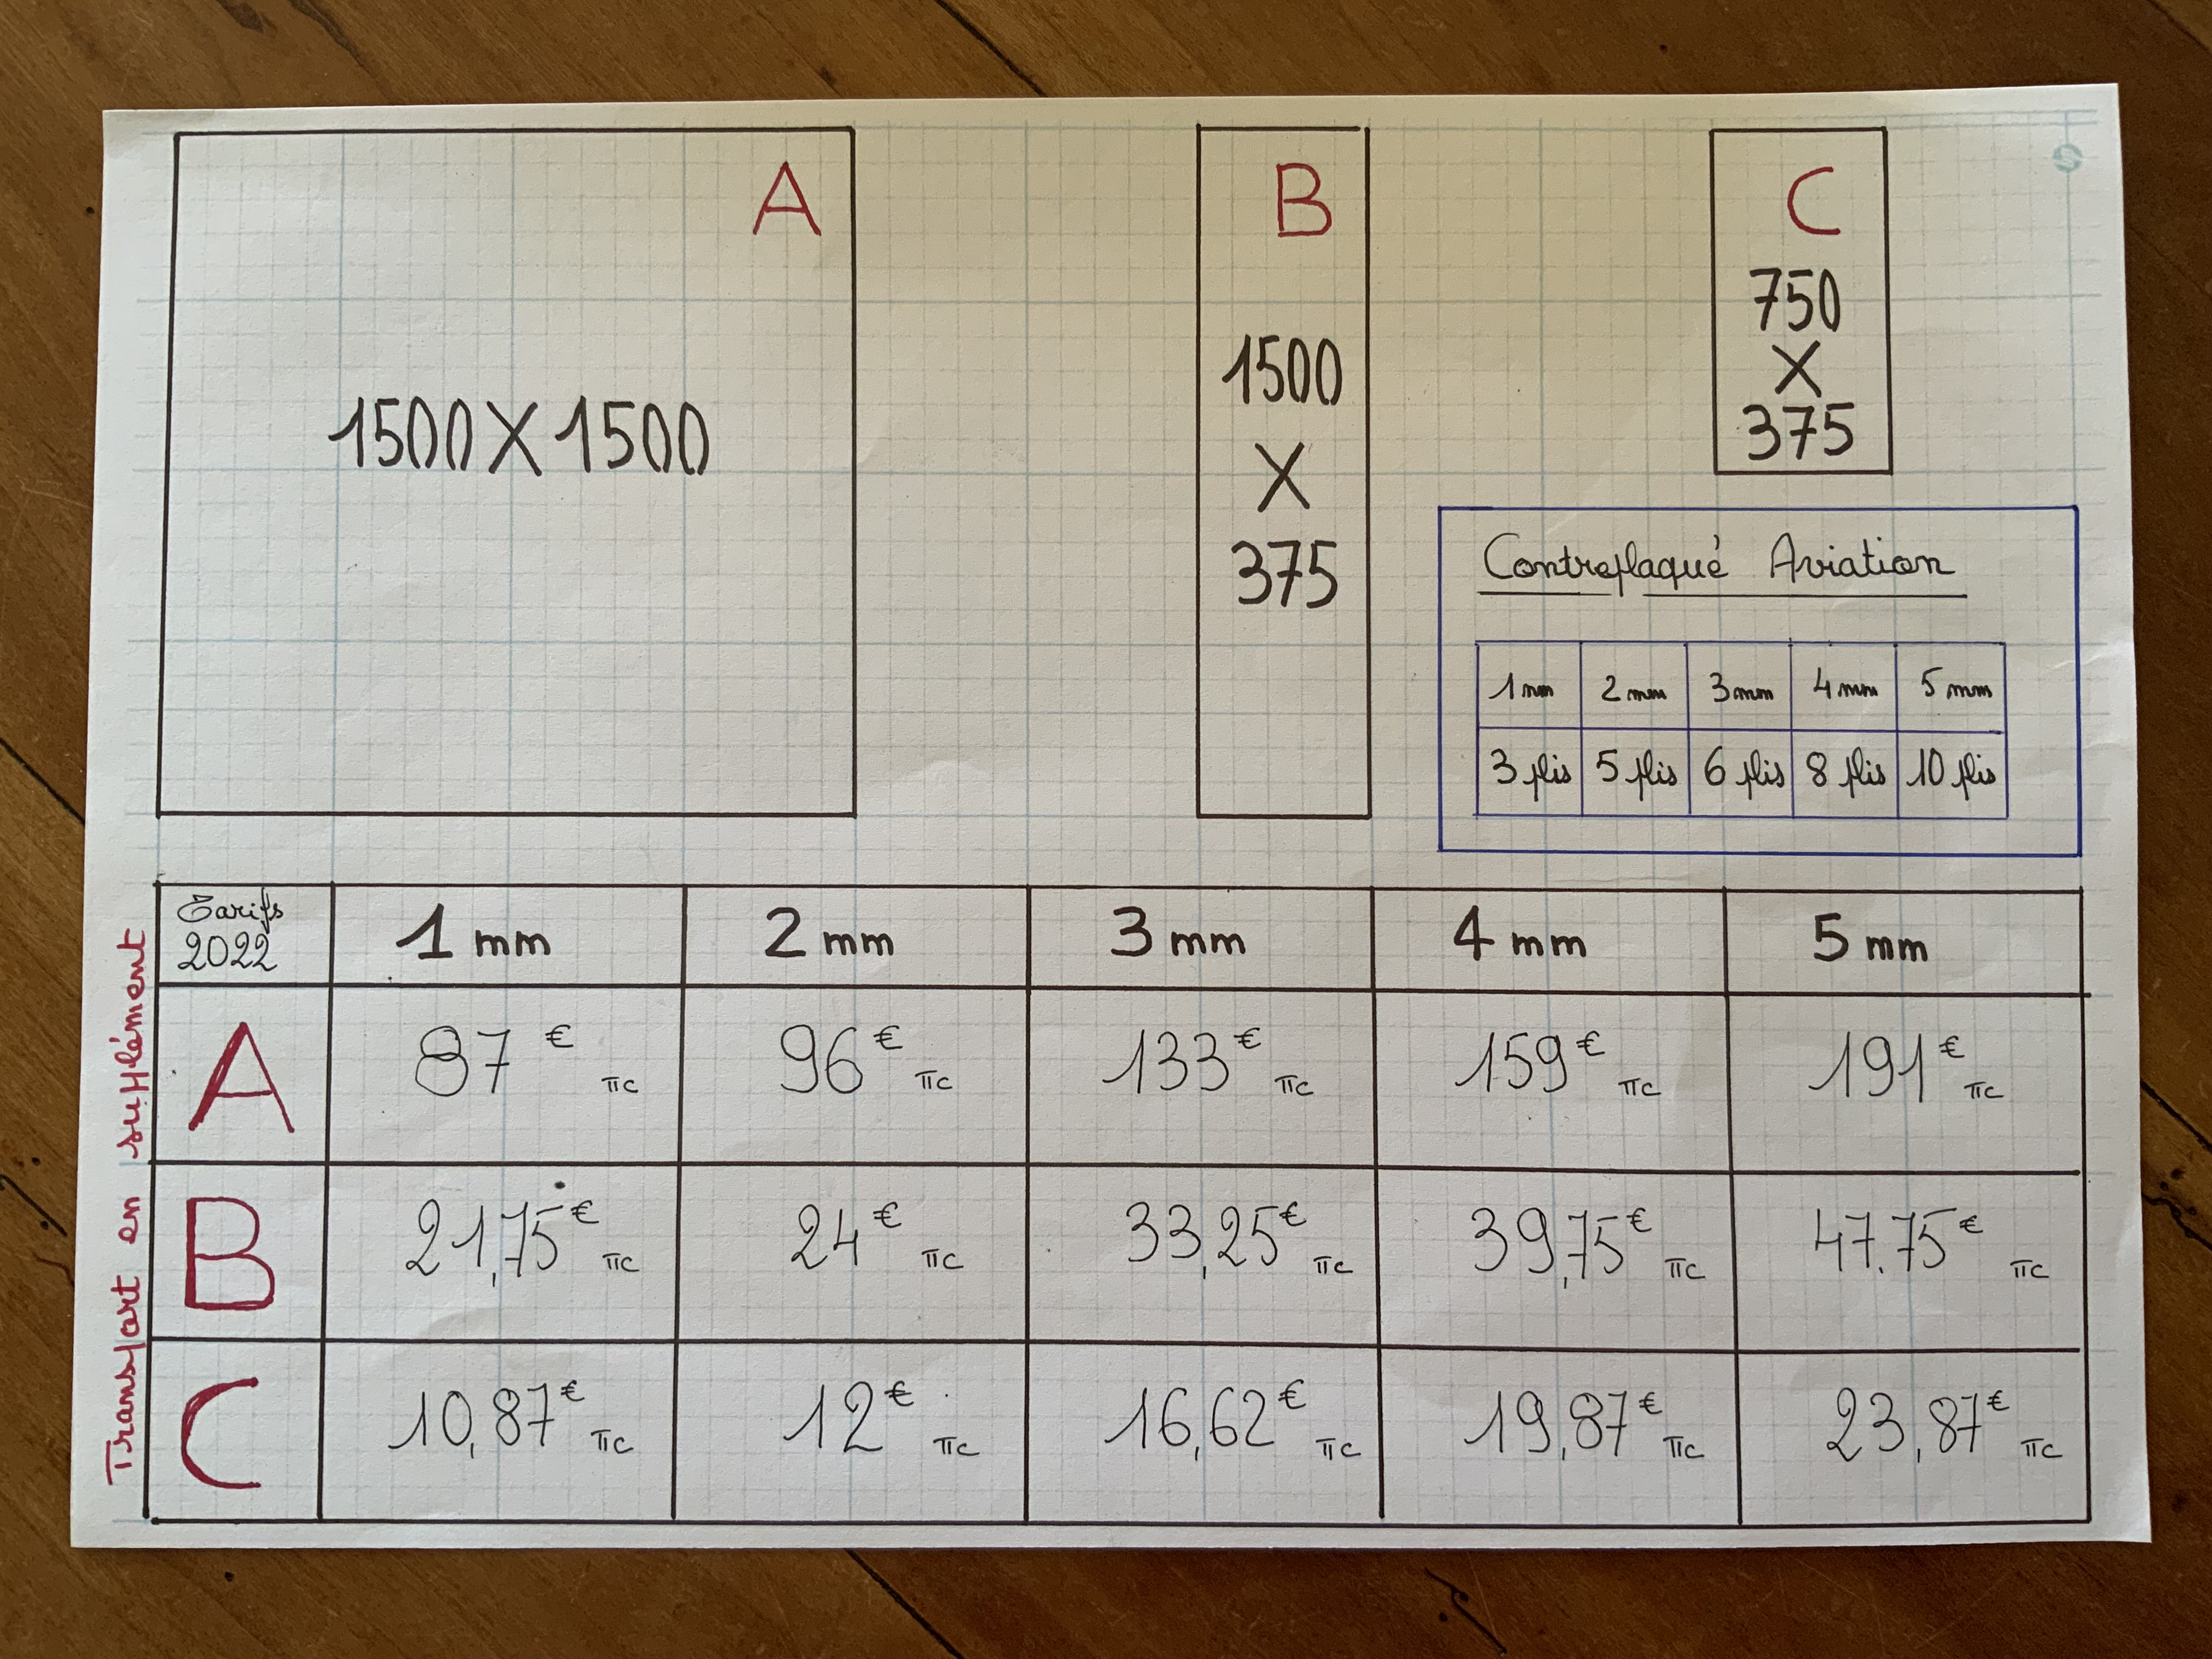 A
1500 X 1500
B
1500
X
375
C
750
X
375
Contreplaqué Aviation
1mm 2mm 3mm 4mm 5mm
3 plis 5 plis 6 plis 8 plis 10 plis
Tarifs 2022 1 mm 2 mm 3 mm 4 mm 5 mm
A 87€ TTC 96€ TTC 133€ TTC 159€ TTC 191€ TTC
B 21,75€ TTC 24€ TTC 33,25€ TTC 39,75€ TTC 47.75€ TTC
C 10,87€ TTC 12€ TTC 16,62€ TTC 19,87€ TTC 23,87€ TTC
Transport en supplément